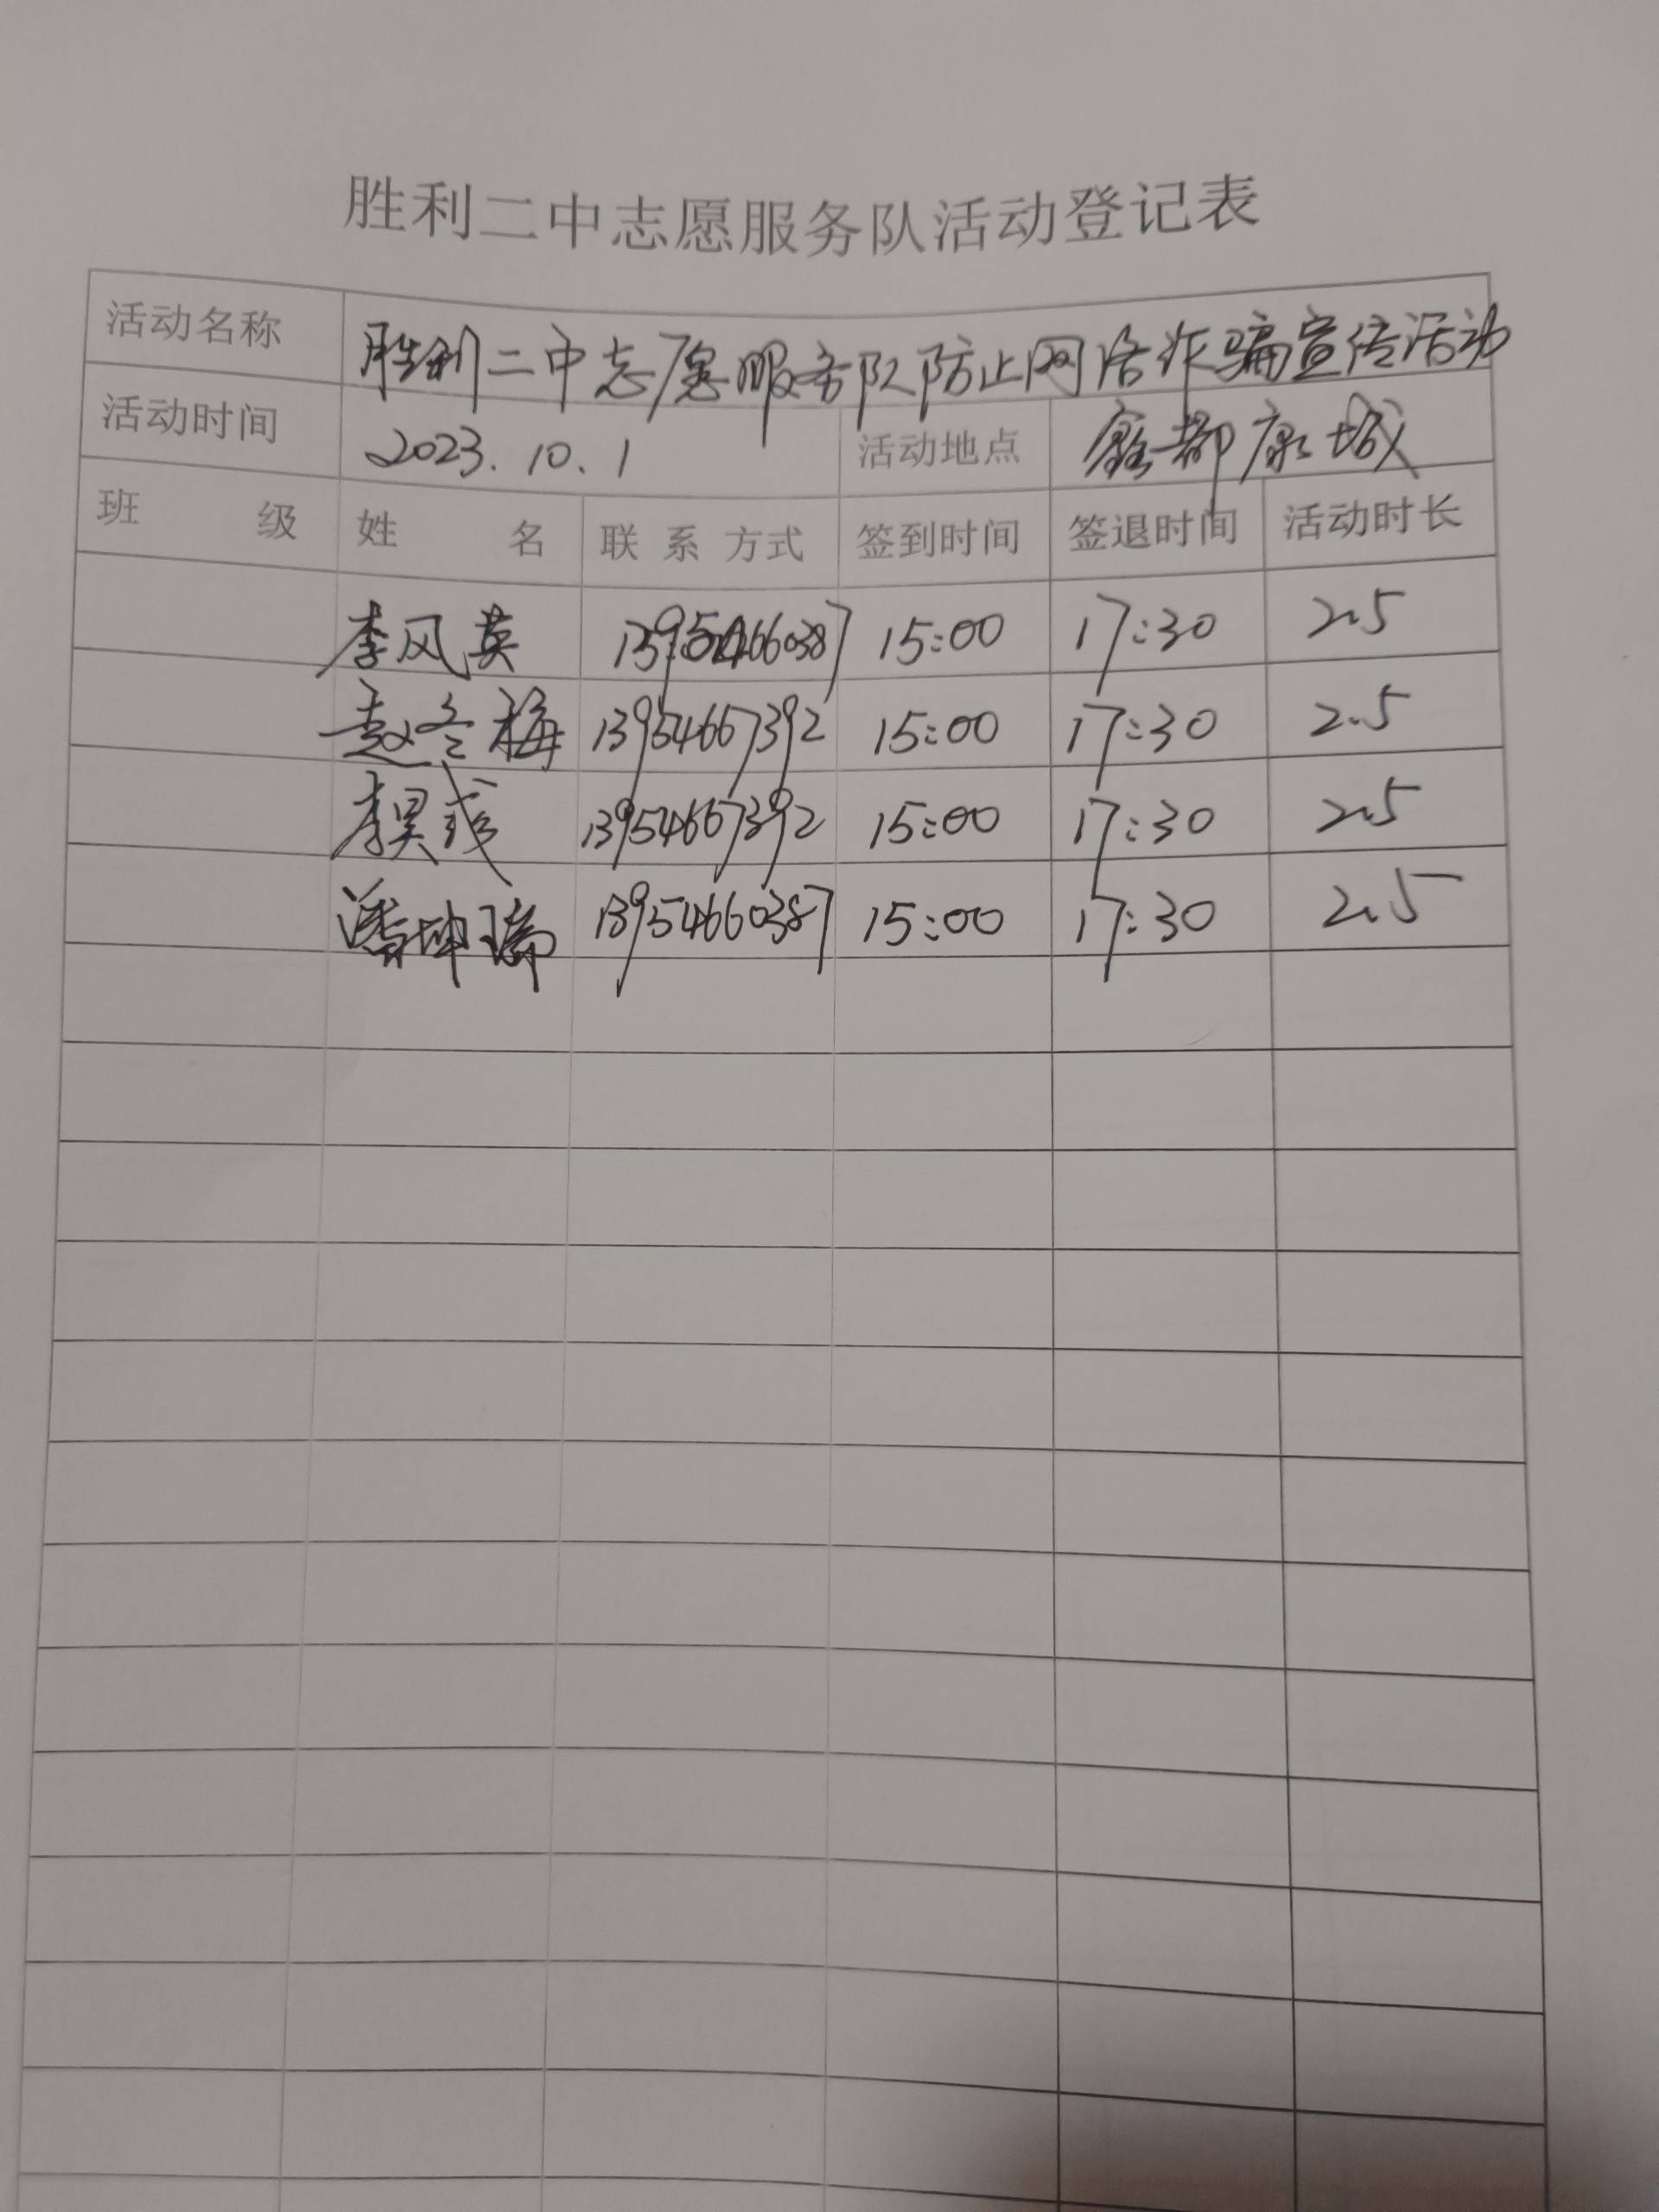 胜利二中志愿服务队活动登记表
活动名称 胜利二中志愿服务队防止网络诈骗宣传活动
活动时间 2023.10.1 活动地点 都康城
班 级 姓 名 联 系 方式 签到时间 签退时间 活动时长
李风英 13954660387 15:00 17:30 2.5
赵冬梅 13954667392 15:00 17:30 2.5
李昊 13954667392 15:00 17:30 2.5
潘坤瑞 13954660387 15:00 17:30 2.5